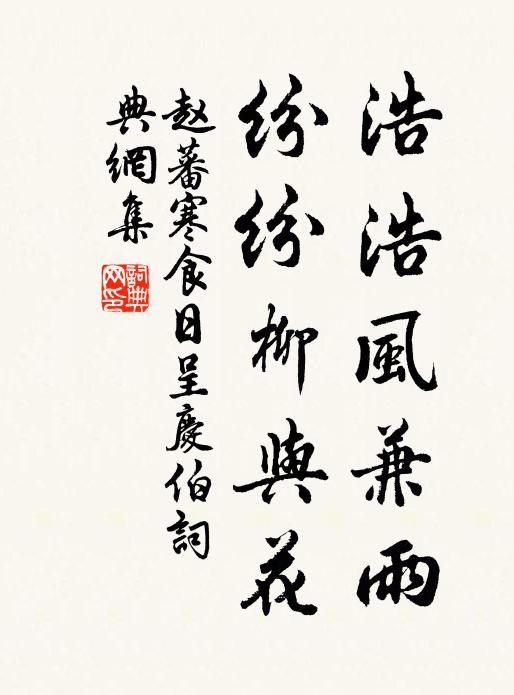 浩浩風兼雨
紛紛柳與花
赵蕃寒食日呈慶伯詞
典網集
詞典网印